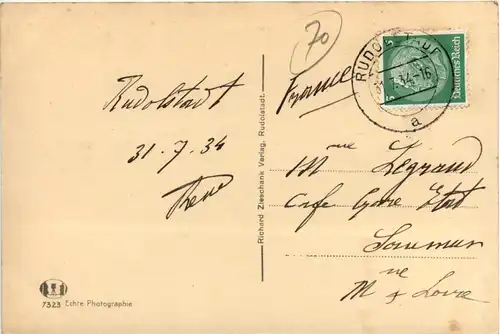 70
Rudolstadt
31.7.34
René
7323 Echte Photographie
Richard Zieschank Verlag, Rudolstadt.
RUDOLSTADT
7.34-16
a
5
Deutsches Reich
France
Mme Legrand
Café Gare Etat
Saumur
M & Loire